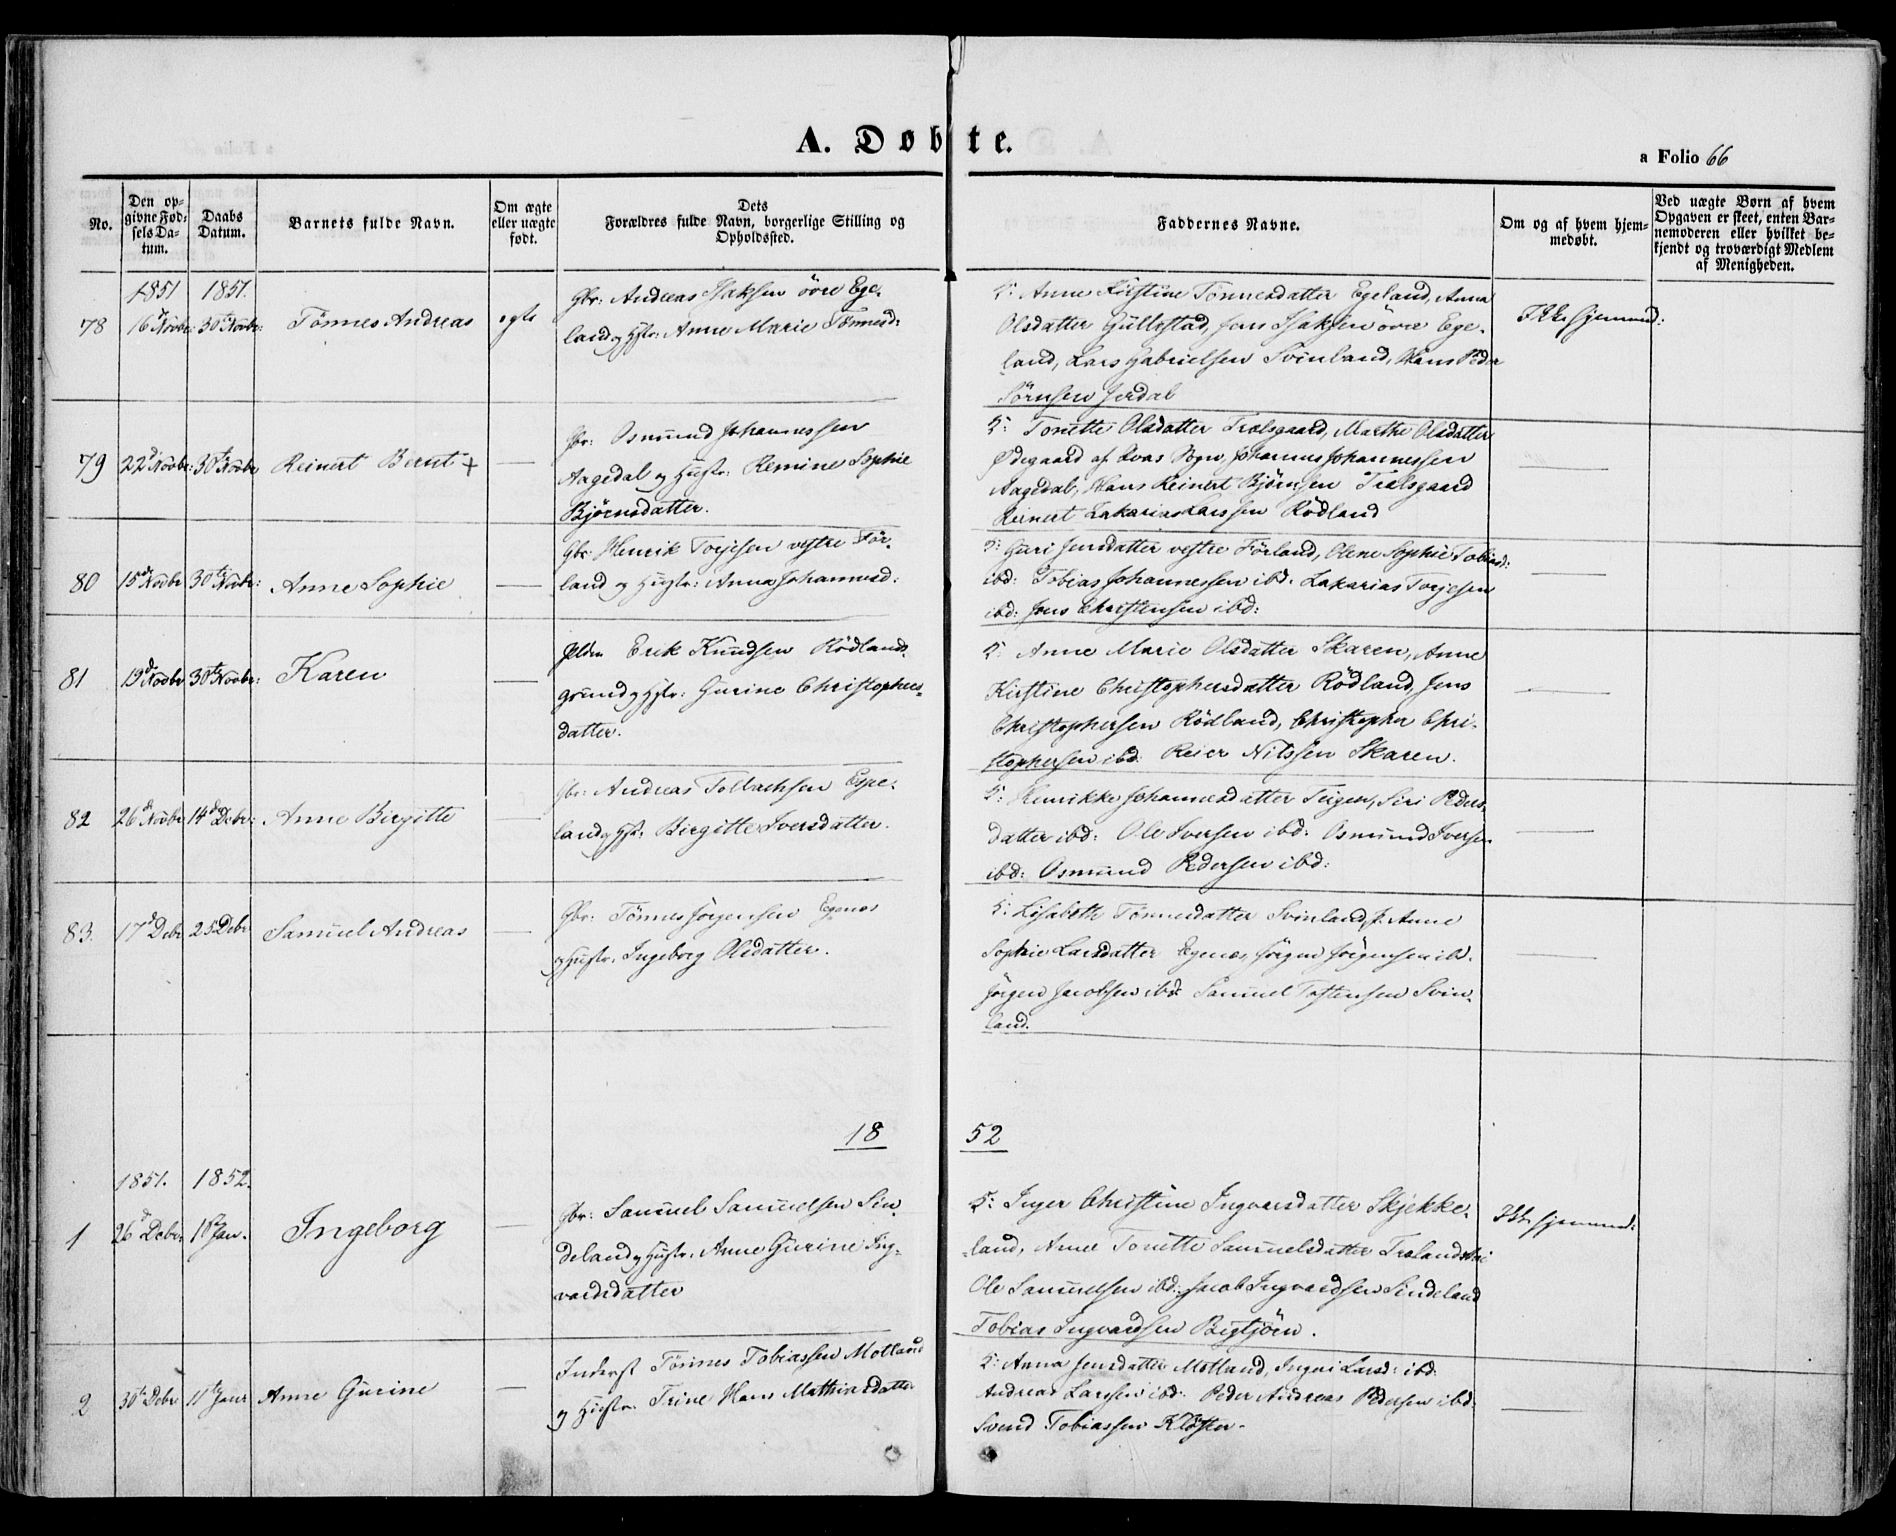 A. Døbte.
a Folio 66
No.
Den op-
givne Fød-
sels Da-
tum.
Daabs
Datum.
Barnets fulde Navn.
Om ægte
eller uægte
født.
Dets
Forældres fulde Navn, borgerlige Stilling og
Opholdssted.
Faddernes Navne.
Om og af hvem hjem-
medøbt.
Ved uægte Børn af hvem
Opgaven er skeet, enten Bar-
nemoderen eller hvilket be-
kjendt og troværdigt Medlem
af Menigheden.
1851 1851.
78 16d Novbr: 30te Novbr: Tönnes Andreas ægte
Gbr: Andreas Isaksen övre Ege-
land og Hstr: Anne Marie Tönnesd:
F: Anne Kirstine Tönnesdatter Egeland, Anna
Olsdatter Gullestad, Jens Isaksen övre Ege-
land, Lars Gabrielsen Svinland, Hans Peder
Sörnsen Jerdal
Ikke hjemmed:
79 22d Novbr: 30te Novbr Reinert Bernt +
Gbr: Osmund Johannessen
Aagedal og Hustr: Remine Sophie
Bjørnsdatter.
F: Tonette Olsdatter Trælsgaard, Marthe Olsdatter
Ødegaard af Qvas Sogn, Johannes Johannessen
Aagedal, Hans Reinert Bjørnsen Trælsgaard
Reinert Zakarias Larssen Rödland
80 15de Novbr 30te Novbr: Anne Sophie
Gbr: Henrik Torjesen vestre För-
land og Hustr: Anna Johannesd:
F: Guri Jensdatter vestre Förland, Olene Sophie Tobiasd:
ibd: Tobias Johannessen ibd. Zakarias Torjesen
ibd: Jens Christensen ibd:
81 19de Novbr 30te Novbr: Karen
Erik Knudsen Rödlands-
grund og Hstr: Gurine Christophers-
datter.
F: Anne Marie Olsdatter Skaren, Anne
Kirstine Christophersdatter Rödland, Jens
Christophersen Rödland, Christopher Chri-
stophersen ibd: Reier Nilssen Skaren.
82 26de Novbr 14de Debr: Anne Birgitte
Gbr: Andreas Tollachsen Espe-
land og Hst: Birgitte Iversdatter.
F: Henrikke Johannesdatter Teigen, Siri Peders-
datter ibd: Ole Iversen ibd: Osmund Iversen
ibd: Osmund Pedersen ibd:
83. 17d Debr 25 Debr Samuel Andreas
Gbr: Tönnes Jörgensen Egenæs
og Hustr: Ingeborg Olsdatter.
F: Lisabeth Tönnesdatter Svinland, p. Anne
Sophie Larsdatter Egenæs, Jörgen Jörgensen ibd.
Jörgen Jacobsen ibd: Samuel Tostensen Svin-
land.
18 52
1851. 1852.
1 26d Debr: 1ste Jan. Ingeborg
Gbr: Samuel Samuelsen Sin-
deland og Hustr: Anne Gurine Ing-
vardsdatter
F: Inger Christine Ingvarsdatter Skjekke-
land, Anne Tonette Samuelsdatter
Ole Samuelsen ibd: Jacob Ingvardsen Sindeland
Tobias Ingvardsen Bigtjörn.
Ikke hjemmed:
2 30te Debr 11te Janr Anne Gurine
Inderst Tönnes Tobiassen Motland
og Hustr: Trine Hans Mathiasdatter
F: Anna Jensdatter Motland, Inger Larsd: ibd:
Andreas Larssen ibd: Peder Andreas Pedersen ibd:
Svend Tobiassen Kloster.